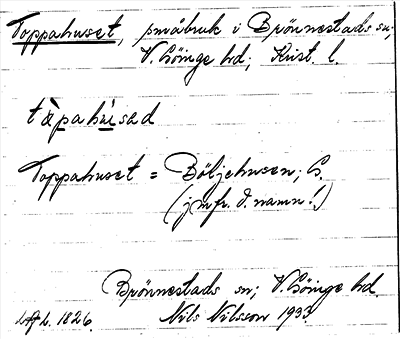 Toppahuset, småbruk i Brönnestads sn;
V. Göinge hd; Krist. l.
tàpahúsəd
Toppahuset = Böljehusen; G.
(jmfr. d. namn!)
Brönnestads sn; V. Göinge hd.
1826. Nils Nilsson 1933